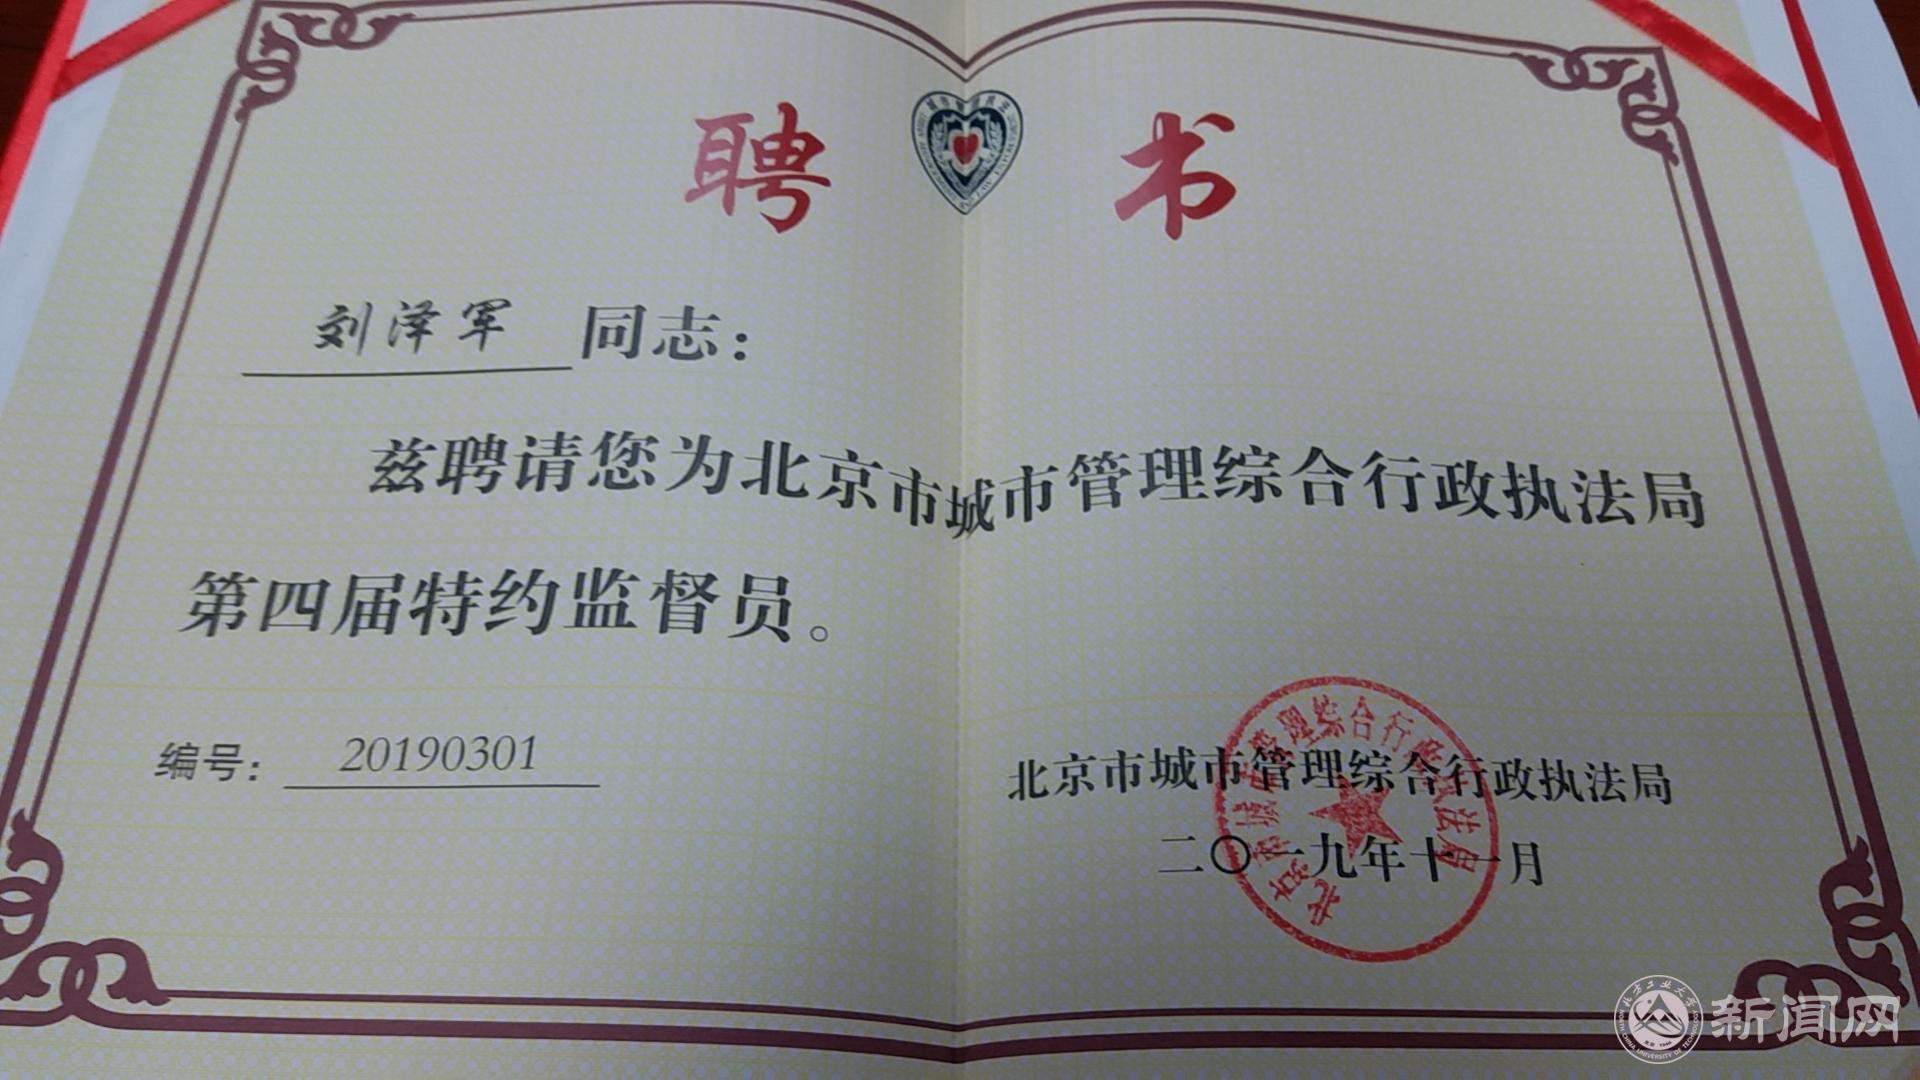 聘 书
刘泽军 同志：
兹聘请您为北京市城市管理综合行政执法局
第四届特约监督员。
编号： 20190301
北京市城市管理综合行政执法局
二〇一九年十一月
北京市城市管理综合行政执法局
北方工业大学
NORTH CHINA UNIVERSITY OF TECHNOLOGY
新闻网